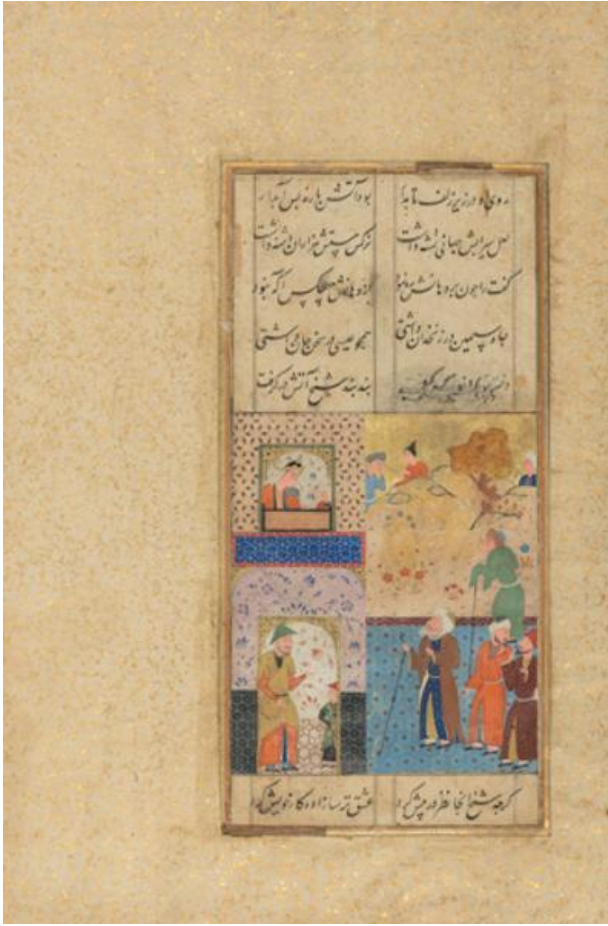 روی او در زیر زلف تابدار بود آتش پاره بس آبدار
لعل سیرابش جهانی تشنه داشت نرکس مستش هزاران دشنه داشت
کفت را چون بر دهانش ره نبود از دهانش هیچکس اکه نبود
چاه سیمین در زنخدان داشتی همچو عیسی در سخن جان داشتی
بند بند شیخ آتش در کرفت
کرچه شیخ انجا نظر در پیش کرد عشق ترسازاده کار خویش کرد